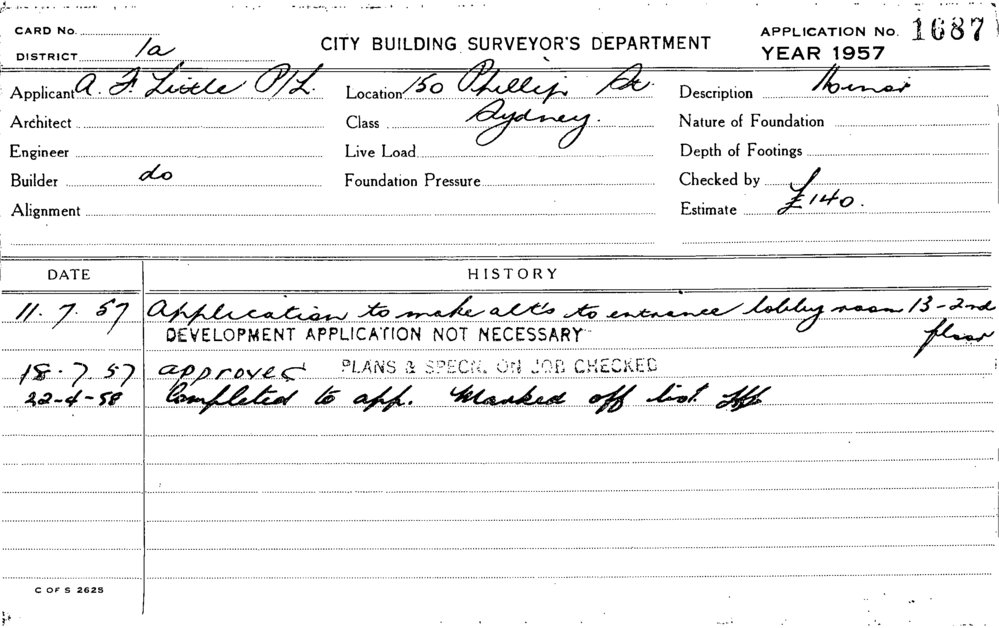 CARD No.
CITY BUILDING SURVEYOR'S DEPARTMENT
APPLICATION No. 1687
DISTRICT 1a
YEAR 1957
Applicant A. F. Little P/L. Location 150 Phillip St. Description Minor
Architect Class Sydney. Nature of Foundation
Engineer Live Load Depth of Footings
Builder do Foundation Pressure Checked by
Alignment Estimate £140.
DATE HISTORY
11. 7. 57 Application to make alt's to entrance lobby room 13-2nd
floor
DEVELOPMENT APPLICATION NOT NECESSARY
18. 7. 57 approved PLANS & SPECN. ON JOB CHECKED
22-4-58 Completed to app. Marked off list
C OF S 2625